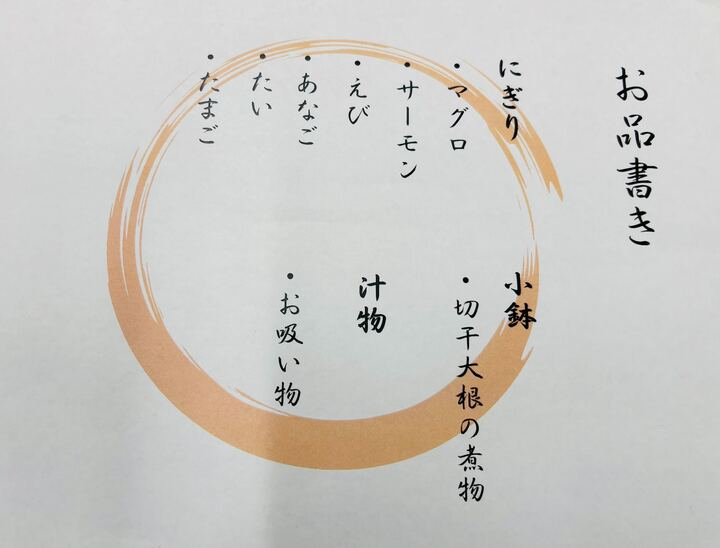 お品書き
にぎり
・マグロ
・サーモン
・えび
・あなご
・たい
・たまご
小鉢
・切干大根の煮物
汁物
・お吸い物